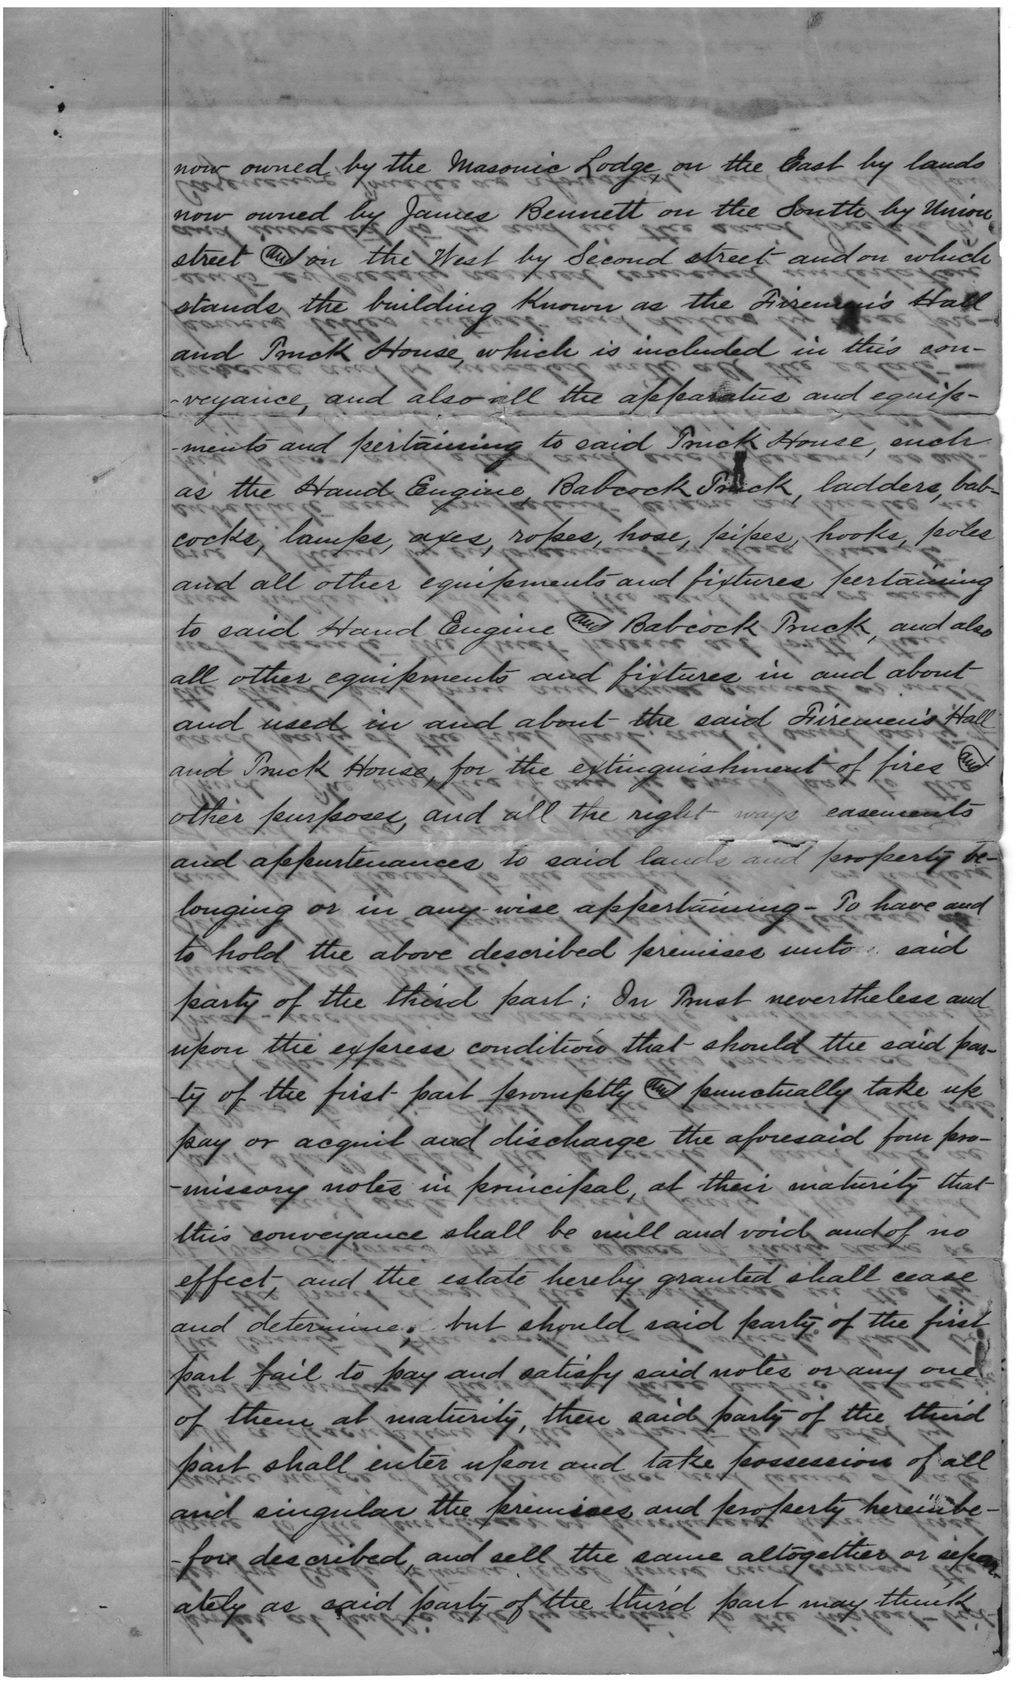 now owned by the Masonic Lodge, on the East by lands
now owned by James Bennett on the South by Union
street and on the West by Second street and on which
stands the building Known as the Firemen's Hall
and Truck House, which is included in this con-
-veyance, and also all the apparatus and equip-
-ments and pertaining to said Truck House, such
as the Hand Engine, Babcock Truck, ladders, bab-
cocks, lamps, axes, ropes, hose, pipes, hooks, poles
and all other equipments and fixtures pertaining
to said Hand Engine and Babcock Truck, and also
all other equipments and fixtures in and about
and used in and about the said Firemen's Hall
and Truck House, for the extinguishment of fires and
other purposes, and all the right ways easements
and appurtenances to said lands and property be-
longing or in any-wise appertaining - To have and
to hold the above described premises unto said
party of the third part; In Trust nevertheless and
upon the express condition that should the said par-
-ty of the first part promptly and punctually take up
pay or acquit and discharge the aforesaid four pro-
-missory notes in principal, at their maturity that
this conveyance shall be null and void and of no
effect, and the estate hereby granted shall cease
and determine; but should said party of the first
part fail to pay and satisfy said notes or any one
of them at maturity, then said party of the third
part shall enter upon and take possession of all
and singular the premises and property hereinbe-
-fore described, and sell the same altogether or separ-
ately as said party of the third part may think